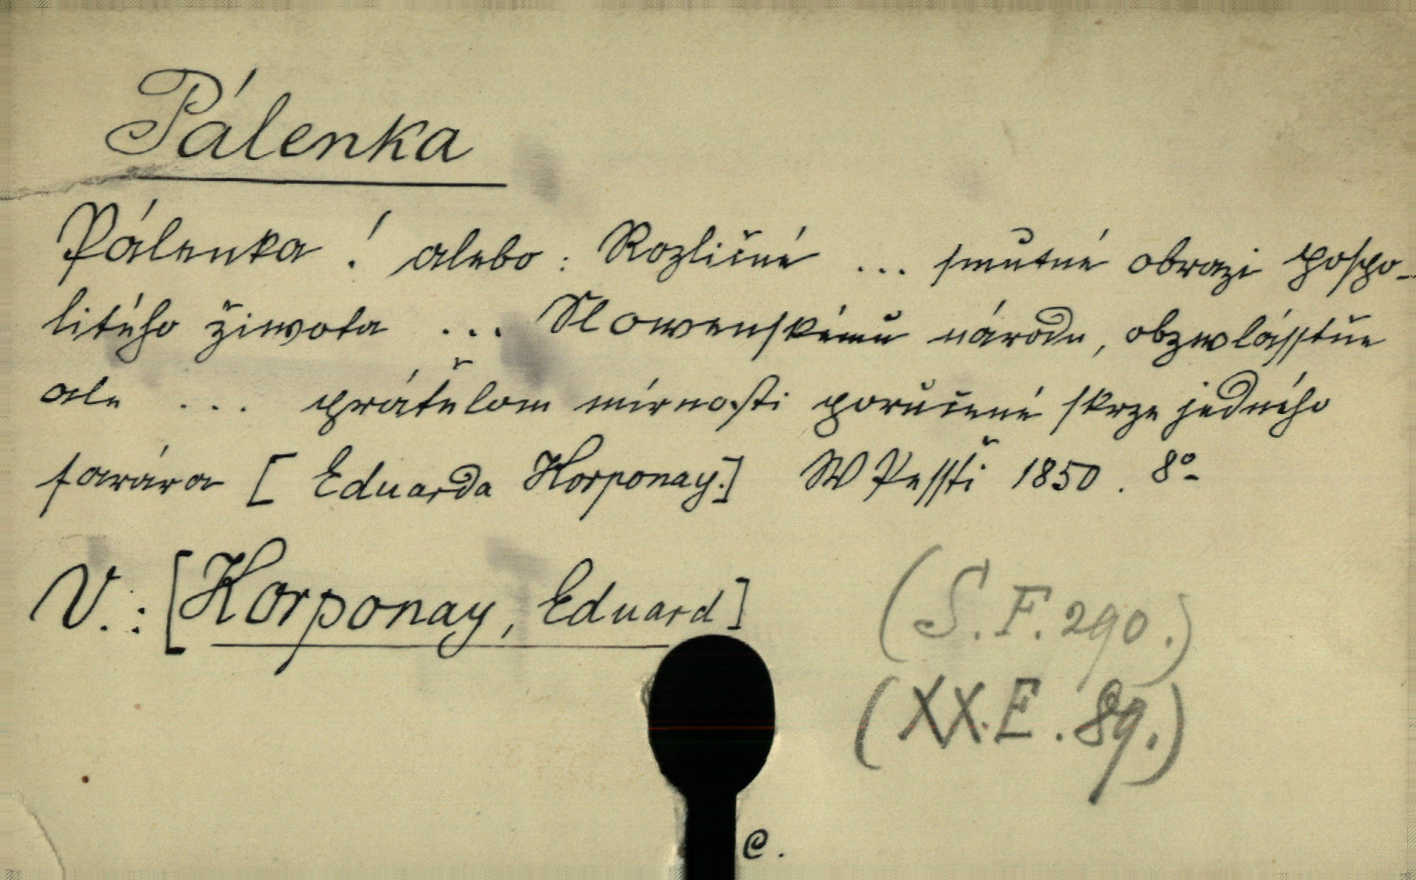 Pálenka
Pálenka! alebo: Rozličné ... smutné obrazi pospo-
litého žiwota ... Slowenskému národu, obzwlásstňe
ale ... práťelom mírnosti poručené skrze jedného
farára [Eduarda Korponay.] W Pessti 1850. 8°
V.: [Korponay, Eduard]
(S.F. 290.)
(XX.E. 89.)
C.